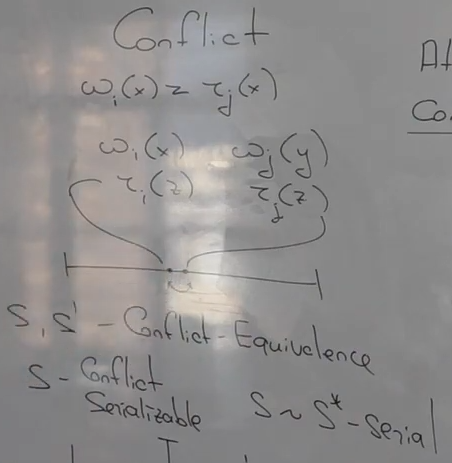 Conflict
ωi(x) z τj(x)
ωi(x) ωj(y)
τi(z) τj(z)
S, S' - Conflict-Equivalence
S - Conflict Serializable
S ~ S* - Serial
At
Co